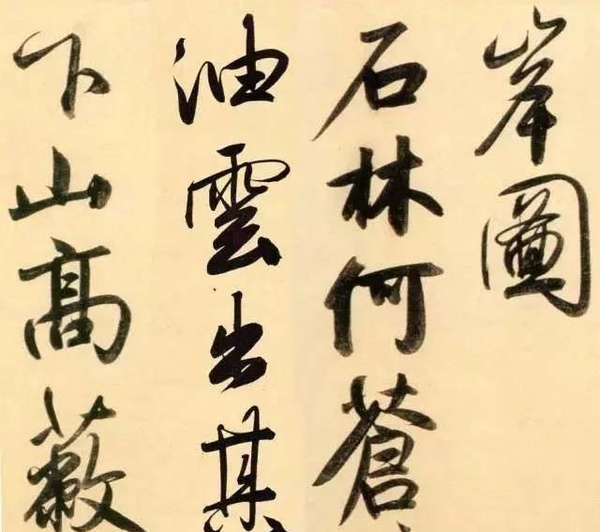 岸圖
石林何蒼
油雲出其
下山高蔽